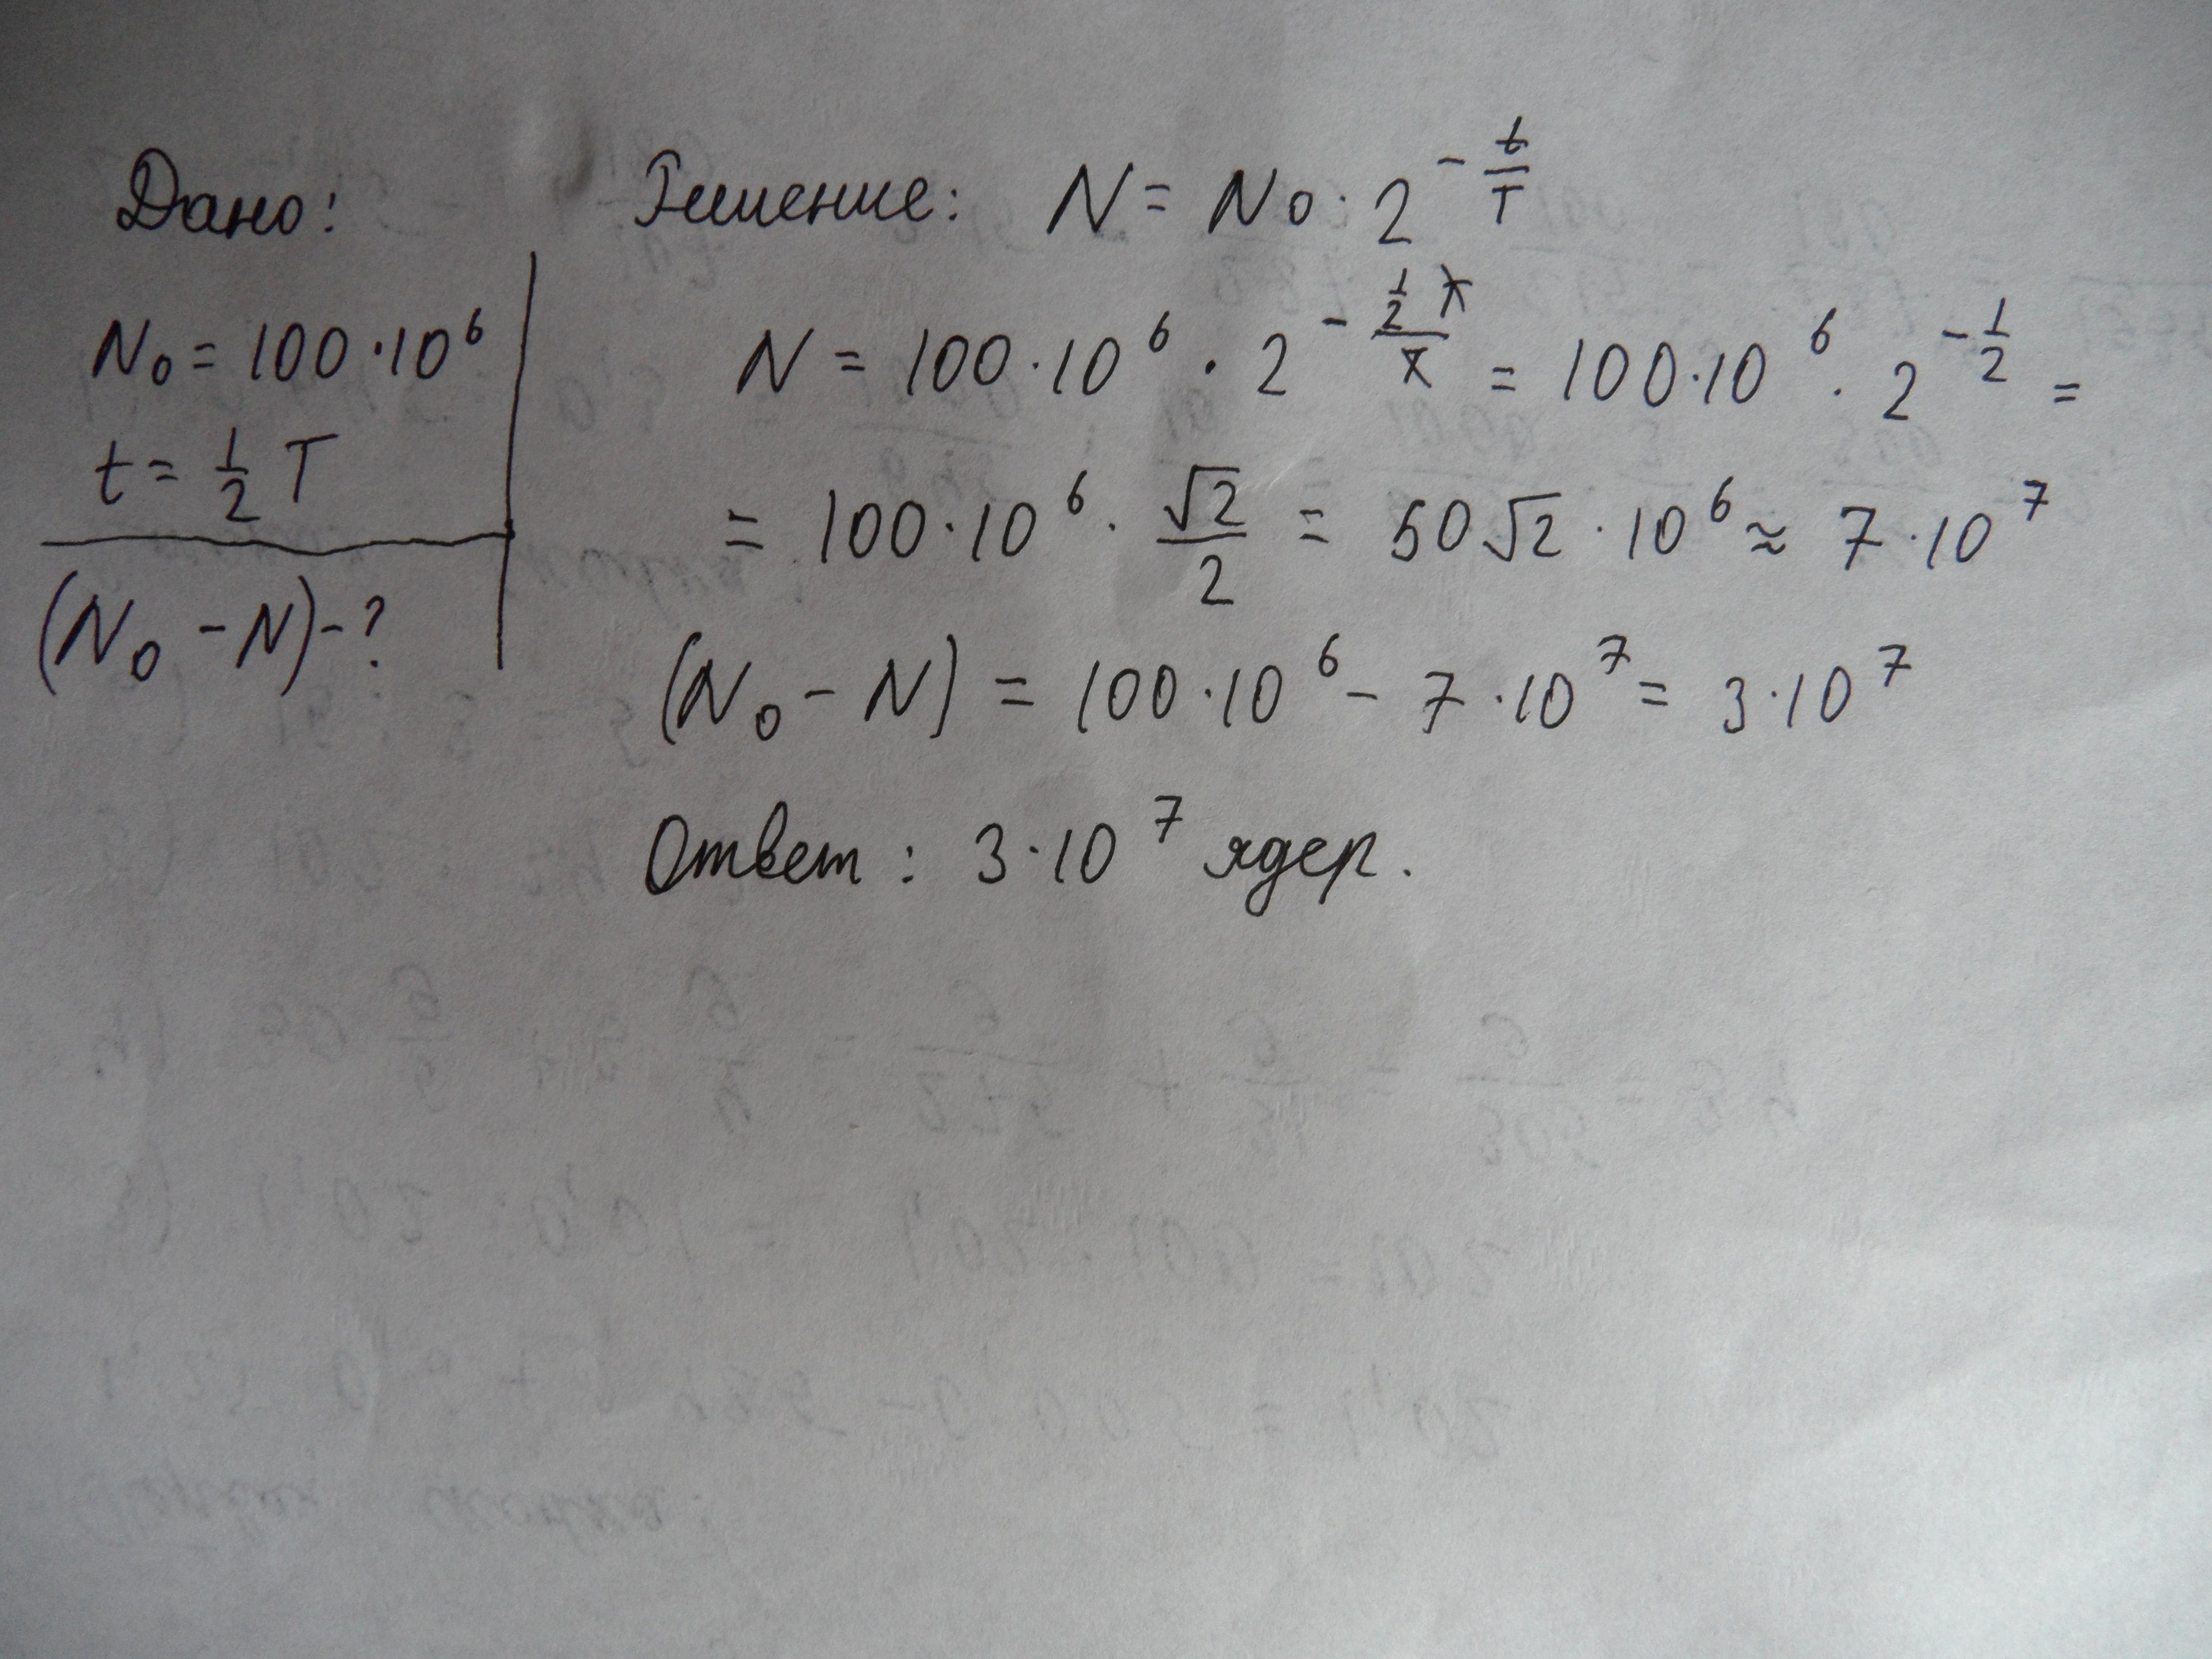 Дано:
N₀ = 100·10⁶
t = 1/2 T
(N₀ - N) - ?
Решение: N = N₀ · 2^(-t/T)
N = 100·10⁶ · 2^(-(1/2 T)/T) = 100·10⁶ · 2^(-1/2) =
= 100·10⁶ · √2/2 = 50√2 · 10⁶ ≈ 7·10⁷
(N₀ - N) = 100·10⁶ - 7·10⁷ = 3·10⁷
Ответ: 3·10⁷ ядер.